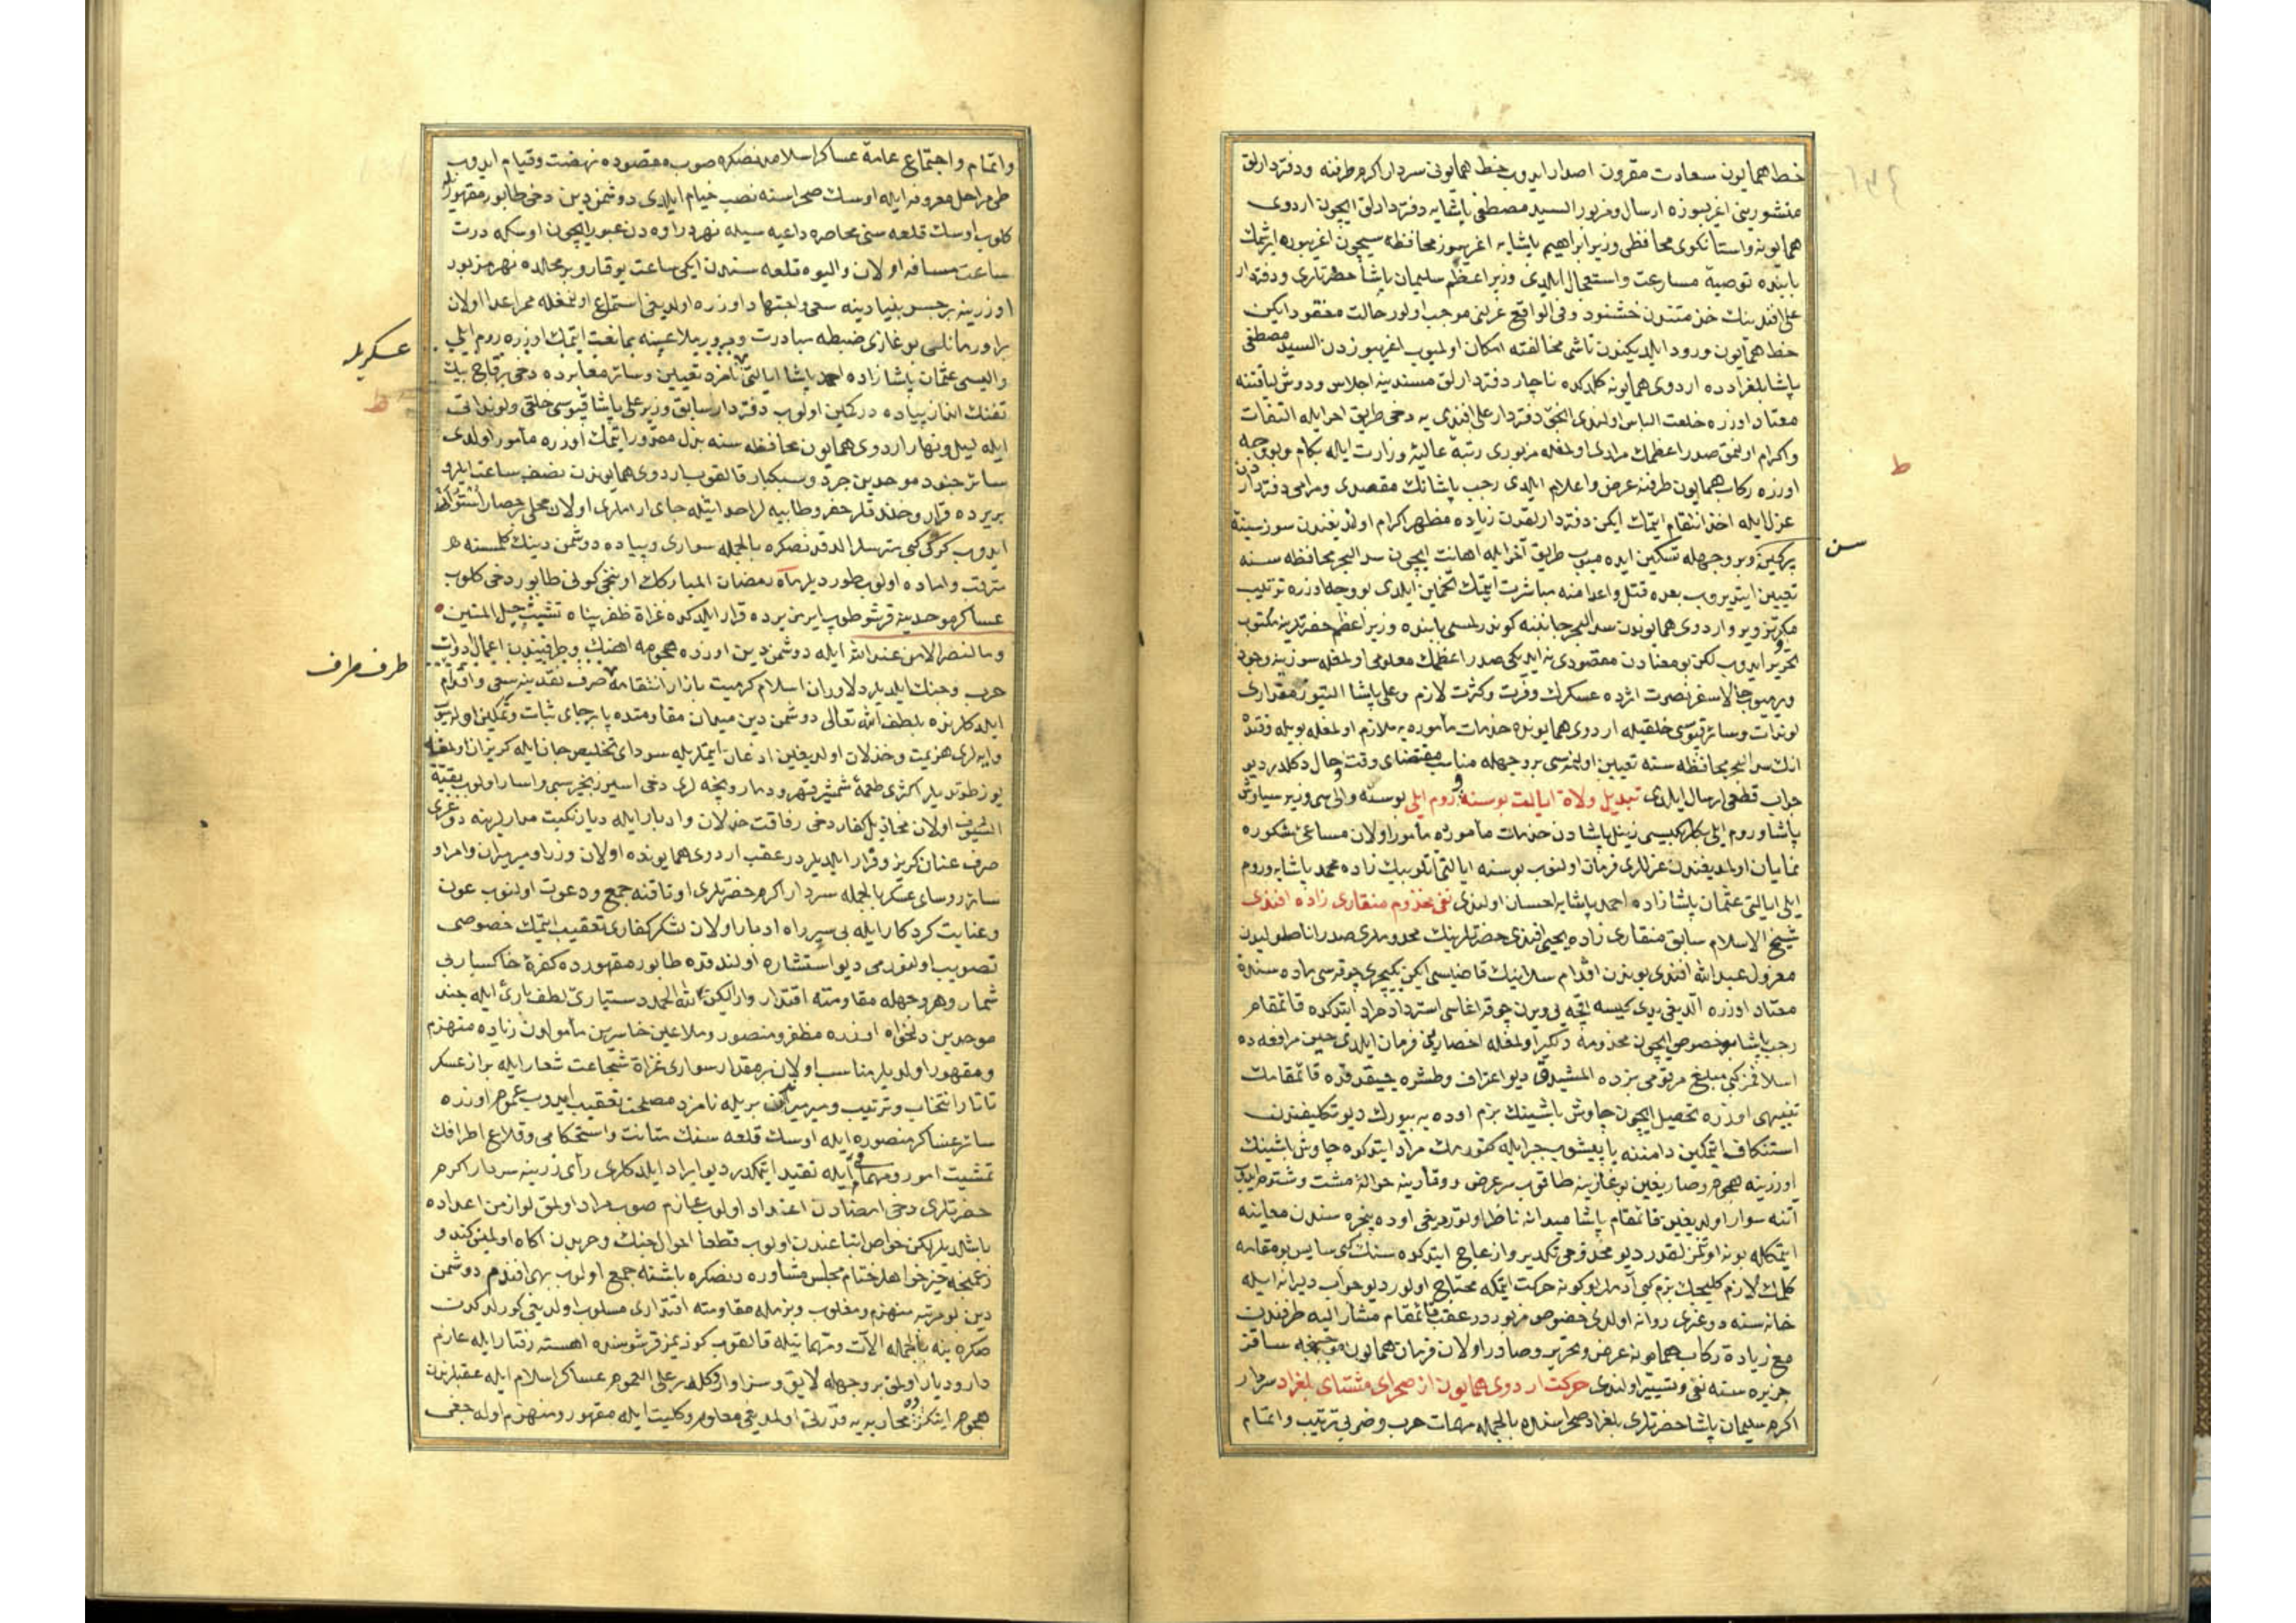 خط همايون سعادت مقرون اصدار ايدوب خط همايونی سردار اكرم طرفنه ودفتردارلق
منشورينی اغريبوزه ارسال ومزبور السيد مصطفی پاشايه دفتردارلق ايچون اردوی
همايونه واستانكوی محافظی وزير ابراهيم پاشايه اغريبوز محافظه سيچون اغريبوزه ايرتمك
بابنده توصيهٔ مسارعت واستعجال ايلدی وزير اعظم سليمان پاشا حضرتلری ودفتردار
علی افندينك خدمتندن خشنود وفی الواقع عزلنی موجب اولور حالت مفقود ايكن
خط همايون ورود ايلديكندن ناشی مخالفته امكان اولميوب اغريبوزدن السيد مصطفی
پاشا بلغرادده اردوی همايونه كلدكده ناچار دفتردارلق مسندينه اجلاس ودوش لياقتنه
معتاد اوزره خلعت الباس اولندی انجق دفتردار علی افندی يه دخی طريق اخر ايله التفات
واكرام اولنمق صدر اعظمك مرادی اولمغله مزبوری رتبهٔ عاليهٔ وزارت ايله بكام وبو وجه
اوزره ركاب همايون طرفنه عرض واعلام ايلدی رجب پاشانك مقصدی ومرامی دفترداردن
عزل ايله اخذ انتقام ايتمك ايكن دفتردارلقدن زياده مظهر اكرام اولديغندن سوز سينهٔ
پركين وبر وجهله تسكين ايده ميوب طريق آخر ايله اهانت ايچون سد البحر محافظه سنه
تعيين ايتديروب بعده قتل واعدامنه مباشرت ايتمك تخمين ايلدی بو وجه اوزره ترتيب
مكر تزوير واردوی همايوندن سد البحر جانبنه كوندرلمسی بابنده وزير اعظم حضرتلرينه مكتوب
تحرير ايدوب لكن بو معنادن مقصودی نه ايديكی صدر اعظمك معلومی اولمغله سوزينه وجود
ويرميوب حالا سفر نصرت اثرده عسكرك وفرت وكثرت لازم وعلی پاشا التيوز مقداری
لوندات وسائر قپوسی خلقيله اردوی همايونده خدمات مأموره يه ملازم اولمغله بويله وقتده
انك سد البحر محافظه سنه تعيين اولنمسی بر وجهله مناسب مقتضای وقت وحال دكلدر ديو
جواب قطعی ارسال ايلدی تبديل ولاة ايالت بوسنه وروم ايلی بوسنه والی سی وزير سياوش
پاشا وروم ايلی بكلربكيسی زينل پاشادن خدمات مأموره مأمور اولان مساعی مشكوره
نمايان اولمديغندن عزللری فرمان اولنوب بوسنه ايالتی اتلوبيك زاده محمد پاشايه وروم
ايلی ايالتی عثمان پاشا زاده احمد پاشايه احسان اولندی نفی مخدوم منقاری زاده افندی
شيخ الاسلام سابق منقاری زاده يحيی افندی حضرتلرينك مخدوملری صدر اناطوليدن
معزول عبد الله افندی بوندن اقدام سلانيك قاضيسی ايكن يكيچری چوقه سی ماده سنده
معتاد اوزره الديغی يدی كيسه اقچه يی ويرن چوقه اغاسی استرداد مراد ايتدكده قائمقام
رجب پاشا بو خصوص ايچون مخدومه دلكير اولمغله احضارينی فرمان ايلدی حين مرافعه ده
اسلافمز كبی مبلغ مرقومی بزده المشيدق ديو اعتراف وطشره چيقدقده قائمقامك
تنبيهی اوزره تحصيل ايچون چاوش باشينك بزم اوده يه بيورك ديو تكليفندن
استنكاف ايتمكين دامننه ياپيشوب جبر ايله كتورمك مراد ايتدكده چاوش باشينك
اوزرينه هجوم وصاريغين بوغازينه طاقوب سر عرض ووقارينه حوالهٔ مشت وشتوم ايدوب
آتنه سوار اولديغين قائمقام پاشا ميدانه ناظر اولنورديغی اوده پنجره سندن معاينه
ايتمكله بونه اوتمزلقدر ديو مخدومی تكدير وازعاج ايتدكده سنك كبی سايس بو مقامه
كلمك لازم كليجك بزم كبی آدمك اوكونه حركت ايتمكه محتاج اولور ديو جواب ديرانه ايله
خانه سنه دوغری روانه اولدی خصوص مزبور در عقب قائمقام مشار اليه طرفندن
مع زيادة ركاب همايونه عرض وتحرير وصادر اولان فرمان همايون موجبنجه ساقز
جزيره سنه نفی وتسيير اولندی حركت اردوی همايون از صحرای مشتای بلغراد سردار
اكرم سليمان پاشا حضرتلری بلغراد صحراسنده بالجمله مهمات حرب وضربی ترتيب واتمام
سن
ط
واتمام واجتماع عامهٔ عساكر اسلامدنصكره صوب مقصوده نهضت وقيام ايدوب
طی مراحل معروفه ايله اوسك صحراسنه نصب خيام ايلدی دوشمن دين دخی طابور مقهورله
كلوب اوسك قلعه سنی محاصره داعيه سيله نهر دراوه دن عبور ايچون اوسكه درت
ساعت مسافه اولان واليوه قلعه سندن ايكی ساعت يوقارو بر محالده نهر مزبور
اوزرينه بر جسر بنيادينه سعی واجتهاد اوزره اولديغی استماع اولنمغله ممر اعدا اولان
براورمانلی بوغازی ضبطه مبادرت ومرور ملاعينه ممانعت ايتمك اوزره روم ايلی
واليسی عثمان پاشا زاده احمد پاشا ايالتی نامزد تعيين وسائر معابرده دخی بر قاچ بيك
تفنك انداز پياده در كمين اولوب دفتردار سابق وزير علی پاشا قپوسی خلقی ولونداتی
ايله ليل ونهار اردوی همايون محافظه سنه بذل مقدور ايتمك اوزره مأمور اولدی
سائر جنود موحدين جرد وسبكبار قالقوب اردوی همايوندن نصف ساعت ايلرو
بر يرده قرار وخندقلر حفر وطابيه لر احداثيله جای اراملری اولان محلی حصار استوار
ايدوب كركی كبی مترسلر الدقدنصكره بالجمله سواری وپياده دوشمن دينك كلمسنه
مترقب واماده اولوب طورديلر ماه رمضان المباركك اونجی كونی طابور دخی كلوب
عساكر موحدينه قرشو طوپ ايرمز يرده قرار ايلدكده غزاة ظفرپناه تشبث حبل المتين
وما النصر الا من عند الله ايله دوشمن دين اوزره هجومه اهنك وطرفيندن اعمال ادوات
حرب وجنك ايلديلر دلاوران اسلام كرميت بازار انتقامه صرف نقدينه سعی واقدام
ايلدكلرنده بلطف الله تعالی دوشمن دين ميدان مقاومتده پابرجای ثبات وتمكين اولميوب
وايه لری هزيمت وخذلان اولديغين اذعان ايتملريله سودای تخليص جان ايله كريزان اولمغله
يوز طوتديلر اكثری طعمهٔ شمشير قهر ودمار ونيجه لری دخی اسير زنجير سبی واسار اولوب بقية
السيوف اولان مخاذيل كفار دخی رفاقت خذلان وادبار ايله ديار نكبت مدارلرينه دوغری
صرف عنان كريز وفرار ايلديلر در عقب اردوی همايونده اولان وزرا وميرميران وامرا و
سائر روسای عسكر بالجمله سردار اكرم حضرتلری اوتاقنه جمع ودعوت اولنوب عون
وعنايت كردكار ايله بی سپر راه ادبار اولان لشكر كفاری تعقيب ايتمك خصوصی
تصويب اولنورمی ديو استشاره اولندقده طابور مقهورده كفرهٔ خاكسار بی
شمار وهر وجهله مقاومته اقتدار وار ليكن لله الحمد دستياری لطف باری ايله جند
موحدين دلخواه اوزره مظفر ومنصور وملاعين خاسرين مأمولدن زياده منهزم
ومقهور اولديلر مناسب اولان بر مقدار سواری غزاة شجاعت شعار ايله براز عسكر
تاتار انتخاب وترتيب وميرميراندن بريله نامزد مصلحت تعقيب ايدوب عموم اوزره
سائر عساكر منصوره ايله اوسك قلعه سنك متانت واستحكامی وقلاع اطرافك
تمشيت امور ومهماتی ايله تقيد ايتمكدر ديو ايراد ايلدكلری رأی زرينه سردار اكرم
حضرتلری دخی امضادن اعتداد اولوب عازم صوب مراد اولمق لوازمن اعداده
باشلديلر ليكن خواص اتباعندن اولوب قطعا احوال جنك وحربدن اكاه اولمين كندو
زعمنجه خيرخواهلر ختام مجلس مشاوره دنصكره باشنه جمع اولوب بهی افندم دوشمن
دين بو مرتبه منهزم ومغلوب وبزمله مقاومته اقتداری مسلوب اولديغی كورلدكدن
صكره ينه بالجمله الات ومهماتيله قالقوب كوزيمز قرشوسنده اهسته رفتار ايله عازم
دار وديار اولمق بر وجهله لايق وسزاوار دكلدر علی العموم عساكر اسلام ايله عقبلرندن
هجوم ايتكز محاربه يه قدرتی اولمديغی معلوم وكليت ايله مقهور ومنهزم اوله جغی
عسكريله
ط
طرف طرف